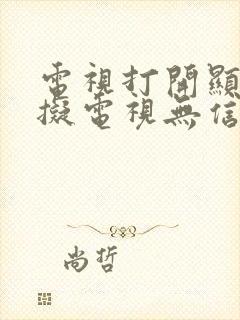 電視打開顯
擬電視無信
尚哲